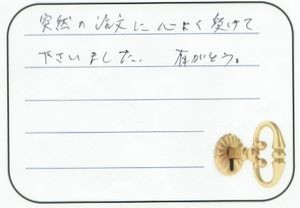 突然の注文に心よく受けて
下さいました。 有がとう。